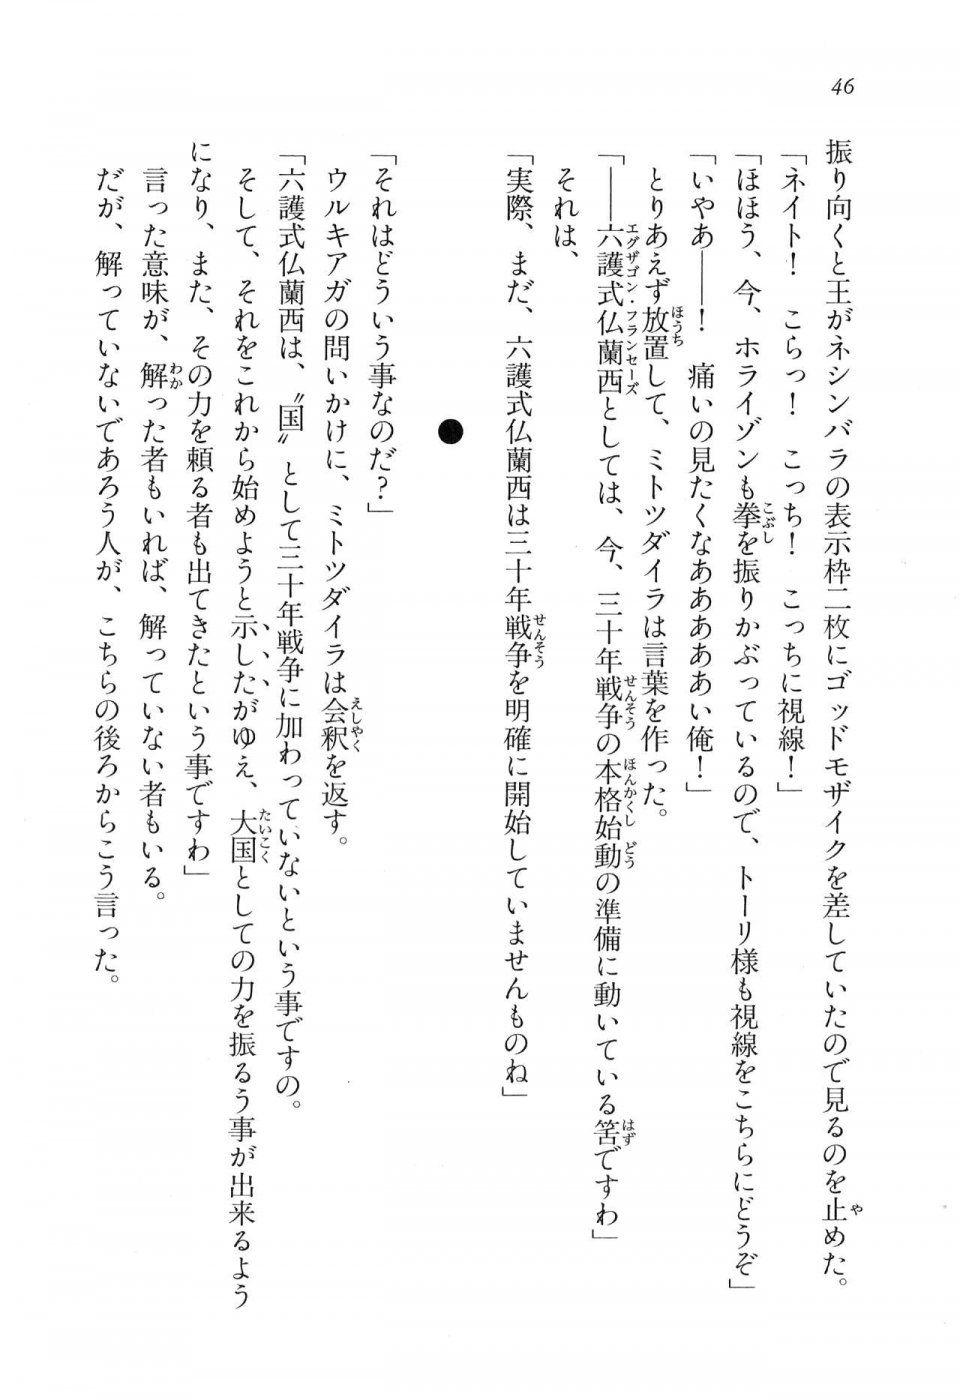 46
振り向くと王がネシンバラの表示枠二枚にゴッドモザイクを差していたので見るのを止めた。
「ネイト！　こらっ！　こっち！　こっちに視線！」
「ほほう、今、ホライゾンも拳を振りかぶっているので、トーリ様も視線をこちらにどうぞ」
「いやあ——！　痛いの見たくなああああい俺！」
とりあえず放置して、ミトツダイラは言葉を作った。
「——六護式仏蘭西としては、今、三十年戦争の本格始動の準備に動いている筈ですわ」
それは、
「実際、まだ、六護式仏蘭西は三十年戦争を明確に開始していませんものね」
●
「それはどういう事なのだ？」
ウルキアガの問いかけに、ミトツダイラは会釈を返す。
「六護式仏蘭西は、〝国〟として三十年戦争に加わっていないという事ですの。
そして、それをこれから始めようと示したがゆえ、大国としての力を振るう事が出来るよう
になり、また、その力を頼る者も出てきたという事ですわ」
言った意味が、解った者もいれば、解っていない者もいる。
だが、解っていないであろう人が、こちらの後ろからこう言った。